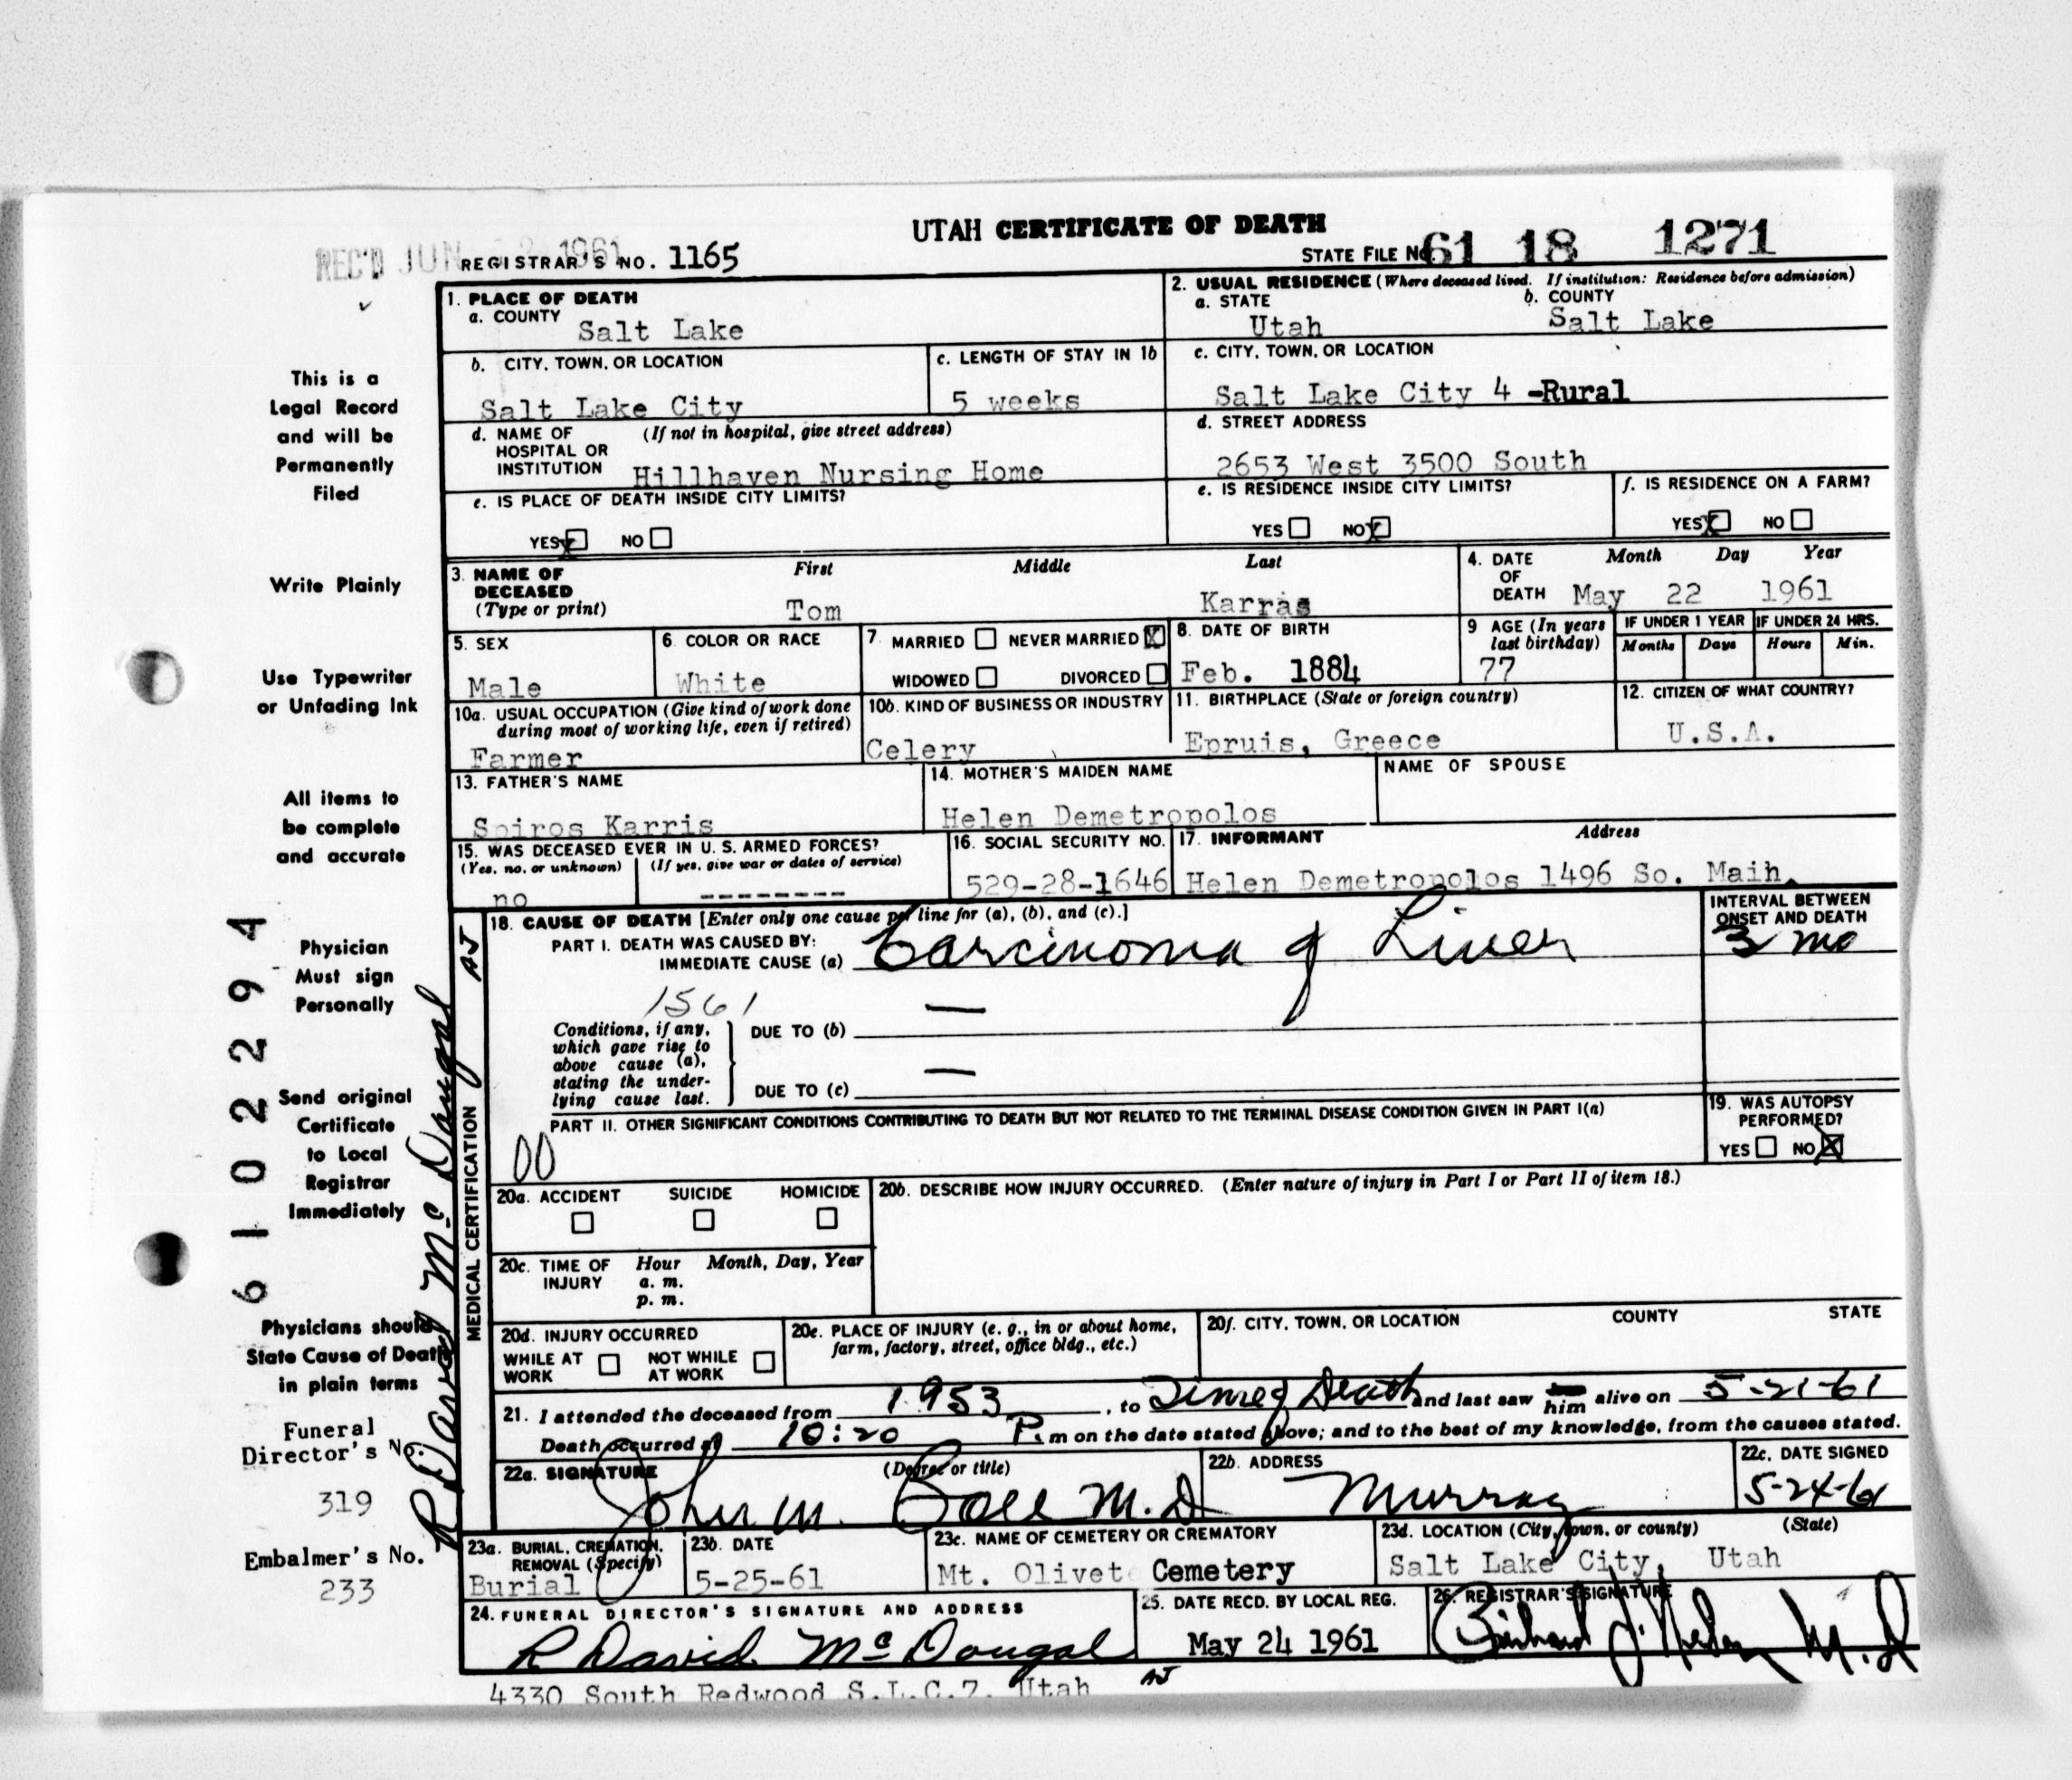 UTAH CERTIFICATE OF DEATH
REC'D JUN 1961
REGISTRAR'S NO. 1165
STATE FILE NO. 61 18 1271
1. PLACE OF DEATH
a. COUNTY Salt Lake
2. USUAL RESIDENCE (Where deceased lived. If institution: Residence before admission)
a. STATE Utah
b. COUNTY Salt Lake
b. CITY, TOWN, OR LOCATION Salt Lake City
c. LENGTH OF STAY IN 1b 5 weeks
c. CITY, TOWN, OR LOCATION Salt Lake City 4 -Rural
d. NAME OF HOSPITAL OR INSTITUTION (If not in hospital, give street address) Hillhaven Nursing Home
d. STREET ADDRESS 2653 West 3500 South
e. IS PLACE OF DEATH INSIDE CITY LIMITS?
YES X NO
e. IS RESIDENCE INSIDE CITY LIMITS?
YES NO X
f. IS RESIDENCE ON A FARM?
YES X NO
3. NAME OF DECEASED (Type or print) First Middle Last
Tom Karras
4. DATE OF DEATH Month Day Year
May 22 1961
5. SEX Male
6. COLOR OR RACE White
7. MARRIED NEVER MARRIED X
WIDOWED DIVORCED
8. DATE OF BIRTH Feb. 1884
9 AGE (In years last birthday) 77
IF UNDER 1 YEAR Months Days
IF UNDER 24 HRS. Hours Min.
10a. USUAL OCCUPATION (Give kind of work done during most of working life, even if retired) Farmer
10b. KIND OF BUSINESS OR INDUSTRY Celery
11. BIRTHPLACE (State or foreign country) Epruis, Greece
12. CITIZEN OF WHAT COUNTRY? U.S.A.
13. FATHER'S NAME Spiros Karris
14. MOTHER'S MAIDEN NAME Helen Demetropolos
NAME OF SPOUSE
15. WAS DECEASED EVER IN U. S. ARMED FORCES?
(Yes, no, or unknown) (If yes, give war or dates of service)
no --------
16. SOCIAL SECURITY NO. 529-28-1646
17. INFORMANT Address
Helen Demetropolos 1496 So. Main.
18. CAUSE OF DEATH [Enter only one cause per line for (a), (b), and (c).]
PART I. DEATH WAS CAUSED BY:
IMMEDIATE CAUSE (a) Carcinoma of Liver
INTERVAL BETWEEN ONSET AND DEATH
3 mo
1561
Conditions, if any, which gave rise to above cause (a), stating the underlying cause last.
DUE TO (b) —
DUE TO (c) —
PART II. OTHER SIGNIFICANT CONDITIONS CONTRIBUTING TO DEATH BUT NOT RELATED TO THE TERMINAL DISEASE CONDITION GIVEN IN PART I(a)
00
19. WAS AUTOPSY PERFORMED?
YES NO X
20a. ACCIDENT SUICIDE HOMICIDE
20b. DESCRIBE HOW INJURY OCCURRED. (Enter nature of injury in Part I or Part II of item 18.)
20c. TIME OF INJURY Hour Month, Day, Year
a. m.
p. m.
20d. INJURY OCCURRED
WHILE AT WORK NOT WHILE AT WORK
20e. PLACE OF INJURY (e. g., in or about home, farm, factory, street, office bldg., etc.)
20f. CITY, TOWN, OR LOCATION COUNTY STATE
21. I attended the deceased from 1953, to Time of Death and last saw him alive on 5-21-61
Death occurred at 10:20 P. m on the date stated above; and to the best of my knowledge, from the causes stated.
22a. SIGNATURE (Degree or title)
John M. M.D
22b. ADDRESS Murray
22c. DATE SIGNED 5-24-61
23a. BURIAL, CREMATION, REMOVAL (Specify) Burial
23b. DATE 5-25-61
23c. NAME OF CEMETERY OR CREMATORY Mt. Olivet Cemetery
23d. LOCATION (City, town, or county) (State)
Salt Lake City, Utah
24. FUNERAL DIRECTOR'S SIGNATURE AND ADDRESS
R David McDougal
4330 South Redwood S.L.C.7, Utah
25. DATE RECD. BY LOCAL REG. May 24 1961
AJ
26. REGISTRAR'S SIGNATURE
M.D
This is a
Legal Record
and will be
Permanently
Filed
Write Plainly
Use Typewriter
or Unfading Ink
All items to
be complete
and accurate
Physician
Must sign
Personally
Send original
Certificate
to Local
Registrar
Immediately
Physicians should
State Cause of Death
in plain terms
Funeral
Director's No.
319
Embalmer's No.
233
6102294
R David McDougal
MEDICAL CERTIFICATION
AJ